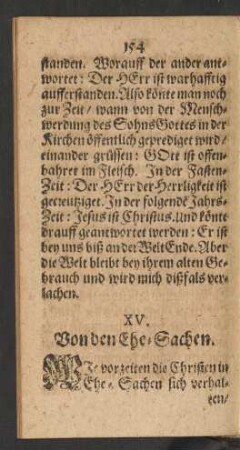 154
standen. Worauff der ander ant-
wortet: Der HErr ist warhafftig
aufferstanden. Also könte man noch
zur Zeit / wann von der Mensch-
werdung des Sohns Gottes in der
Kirchen öffentlich geprediget wird /
einander grüssen: GOtt ist offen-
bahret im Fleisch. In der Fasten-
Zeit: Der HErr der Herrligkeit ist
gecreutziget. In der folgendẽ Jahrs-
Zeit: Jesus ist Christus. Und könte
drauff geantwortet werden: Er ist
bey uns biß an der Welt Ende. Aber
die Welt bleibt bey ihrem alten Ge-
brauch und wird mich dißfals ver-
lachen.
XV.
Von den Ehe-Sachen.
WIe vor zeiten die Christen in
Ehe-Sachen sich verhal-
ten /